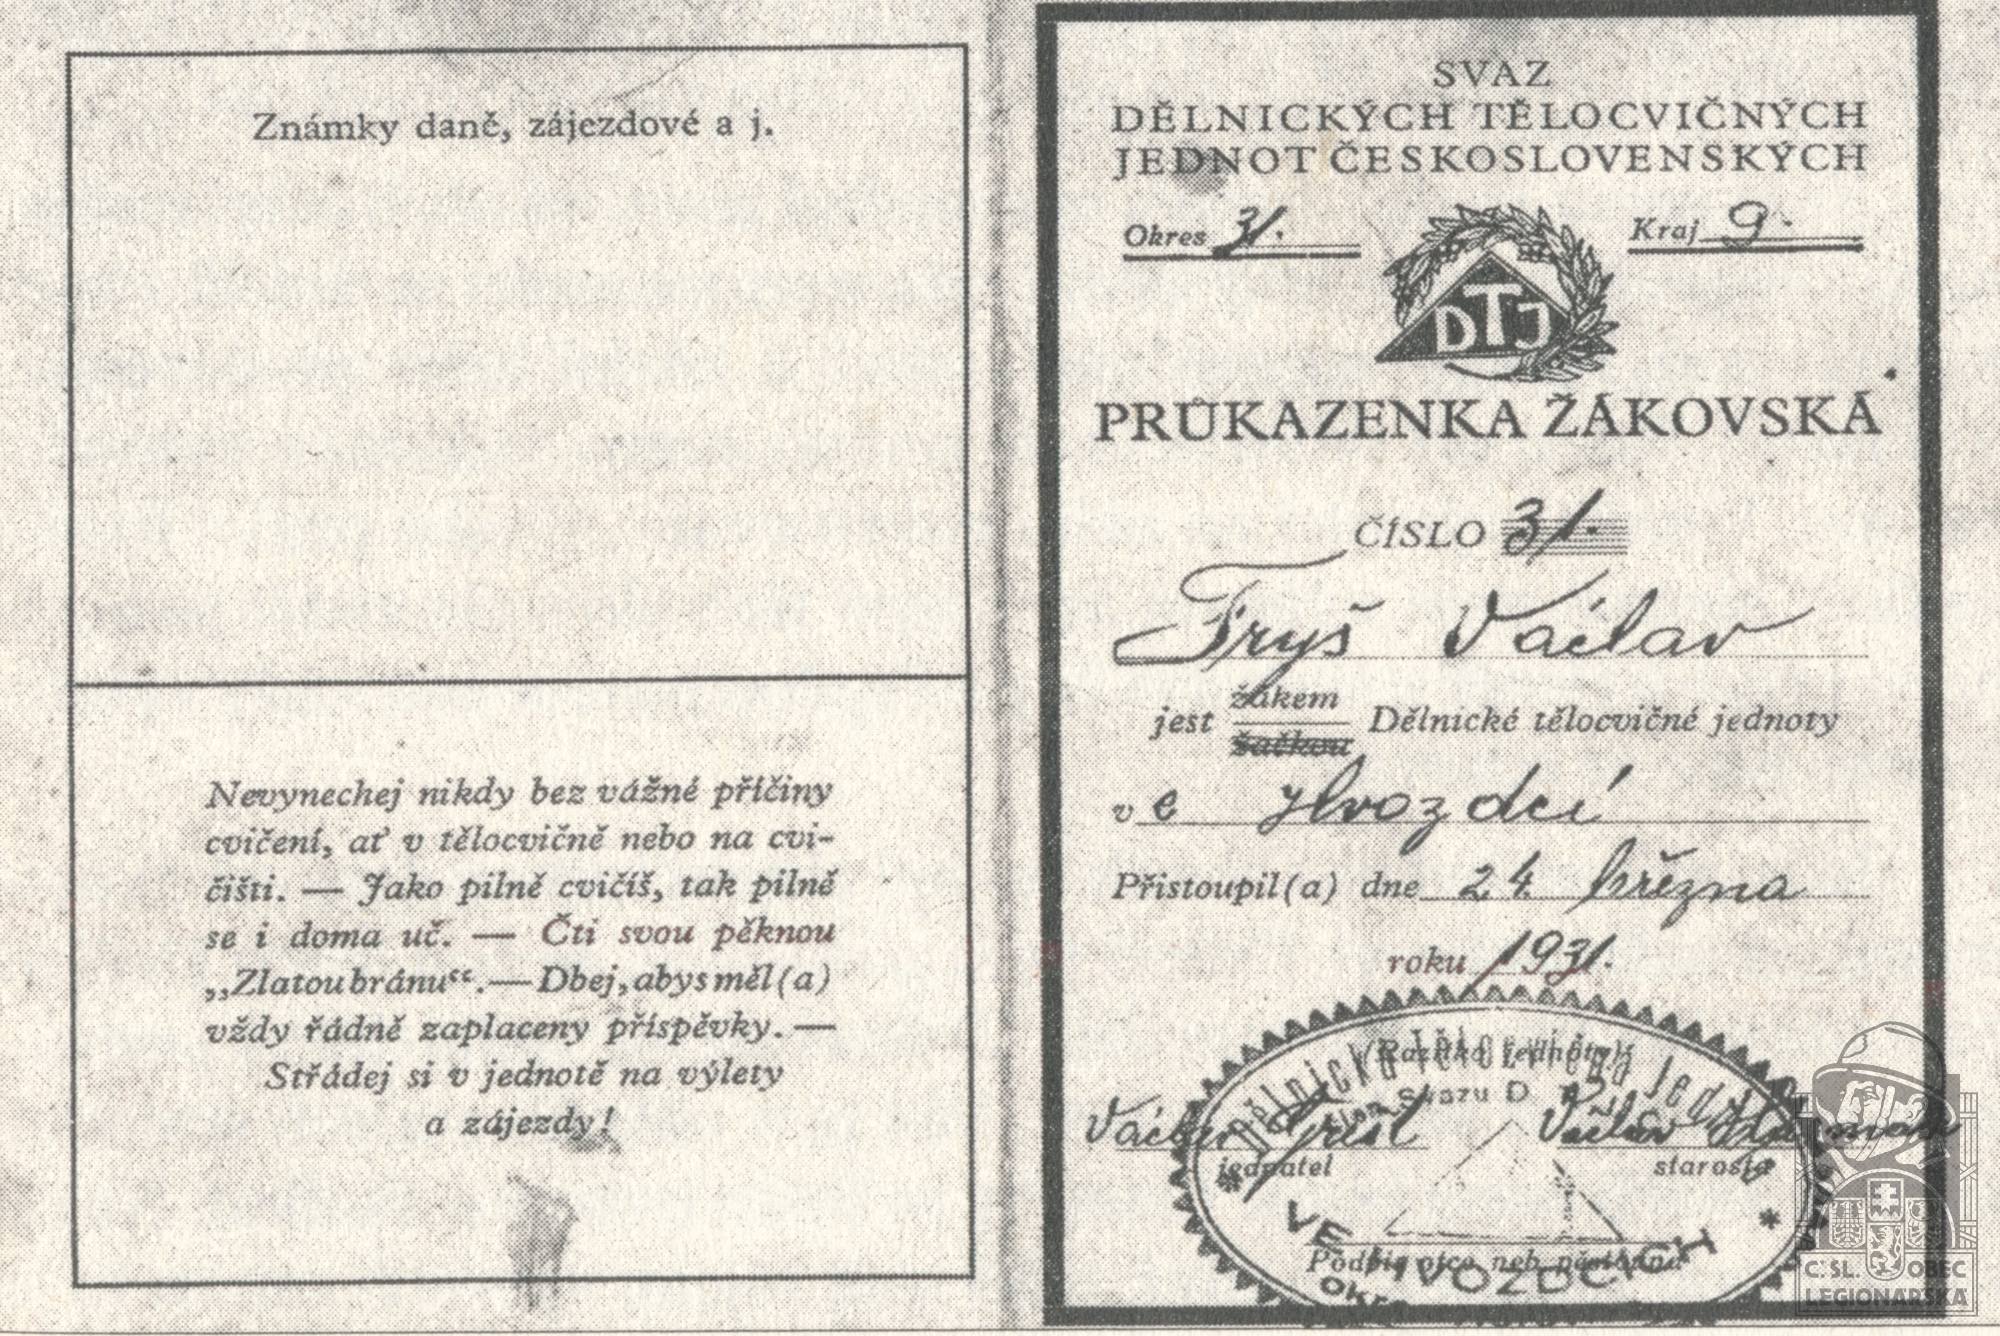 Známky daně, zájezdové a j.
Nevynechej nikdy bez vážné příčiny
cvičení, ať v tělocvičně nebo na cvi-
čišti. — Jako pilně cvičíš, tak pilně
se i doma uč. — Čti svou pěknou
„Zlatou bránu“. — Dbej, abys měl(a)
vždy řádně zaplaceny příspěvky. —
Střádej si v jednotě na výlety
a zájezdy!
SVAZ
DĚLNICKÝCH TĚLOCVIČNÝCH
JEDNOT ČESKOSLOVENSKÝCH
Okres 31. Kraj 9.
DTJ
PRŮKAZENKA ŽÁKOVSKÁ
ČÍSLO 31.
Fryš Václav
jest žákem žačkou Dělnické tělocvičné jednoty
v e Hvozdcí
Přistoupil(a) dne 24. března
roku 1931.
(Razítko jednoty)
Dělnická tělocvičná jednota
člen Svazu D. T. J.
Václav Václav
jednatel starosta
VE HVOZDCÍCH
Podpis otce neb pěstouna
okr.
Č. SL. OBEC
LEGIONÁŘSKÁ